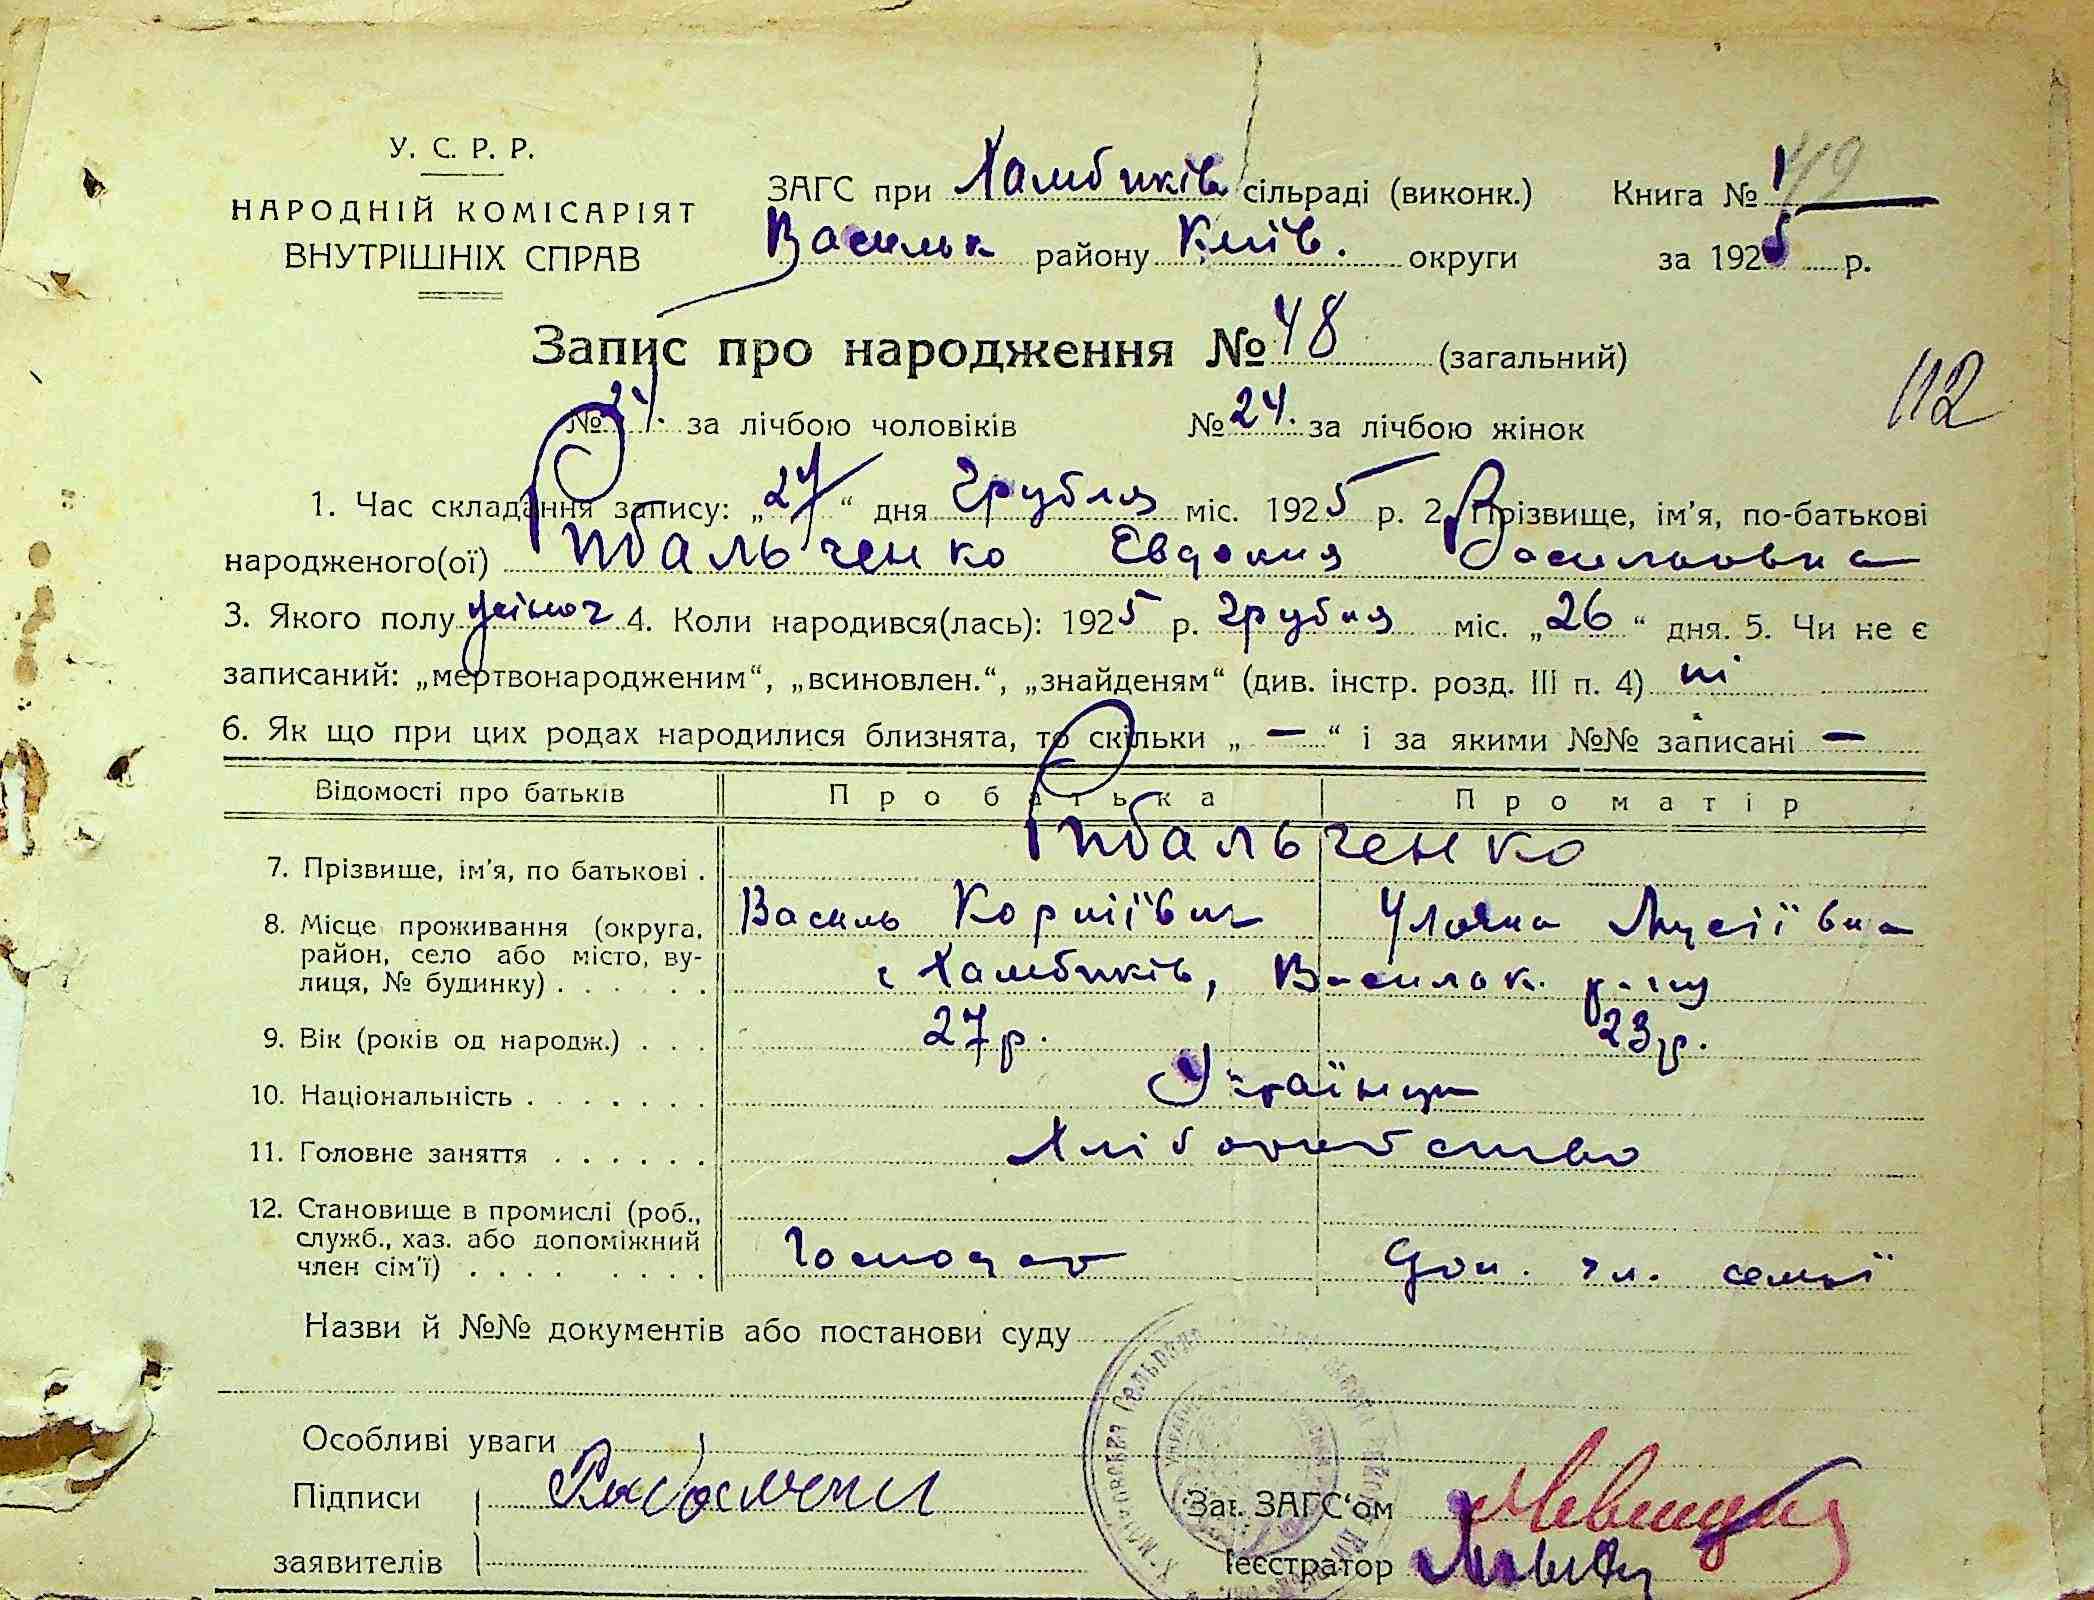 У. С. Р. Р.
НАРОДНІЙ КОМІСАРІЯТ
ВНУТРІШНІХ СПРАВ
ЗАГС при Хамбиків сільраді (виконк.) Книга № 1
Васильк району Київ. округи за 1925 р.
Запис про народження № 48 (загальний)
112
№ 24. за лічбою чоловіків № 24. за лічбою жінок
1. Час складання запису: „27“ дня Грудня міс. 1925 р. 2. Прізвище, ім'я, по-батькові
народженого(ої) Рибальченко Евдокия Васильовна
3. Якого полу жіноч 4. Коли народився(лась): 1925 р. Грудня міс. „26“ дня. 5. Чи не є
записаний: „мертвонародженим“, „всиновлен.“, „знайденям“ (див. інстр. розд. III п. 4) ні
6. Як що при цих родах народилися близнята, то скільки „ — “ і за якими №№ записані —
Відомості про батьків Про батька Про матір
7. Прізвище, ім'я, по батькові . Рибальченко
Василь Корніївич Уляна Мусіївна
8. Місце проживання (округа, район, село або місто, вулиця, № будинку) . . . . . . с Хамбиків, Васильк. р-ну
9. Вік (років од народж.) . . . 27 р. 23 р.
10. Національність . . . . . . . Українці
11. Головне заняття . . . . . . Хліборобство
12. Становище в промислі (роб., служб., хаз. або допоміжний член сім'ї) . . . . . . . . Господар Доп. чл. семьї
Назви й №№ документів або постанови суду
Особливі уваги
Підписи заявителів
Зав. ЗАГС'ом
Реєстратор